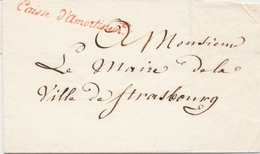 Caisse d'amortissem.t
A Monsieur
Le Maire de la
Ville de Strasbourg